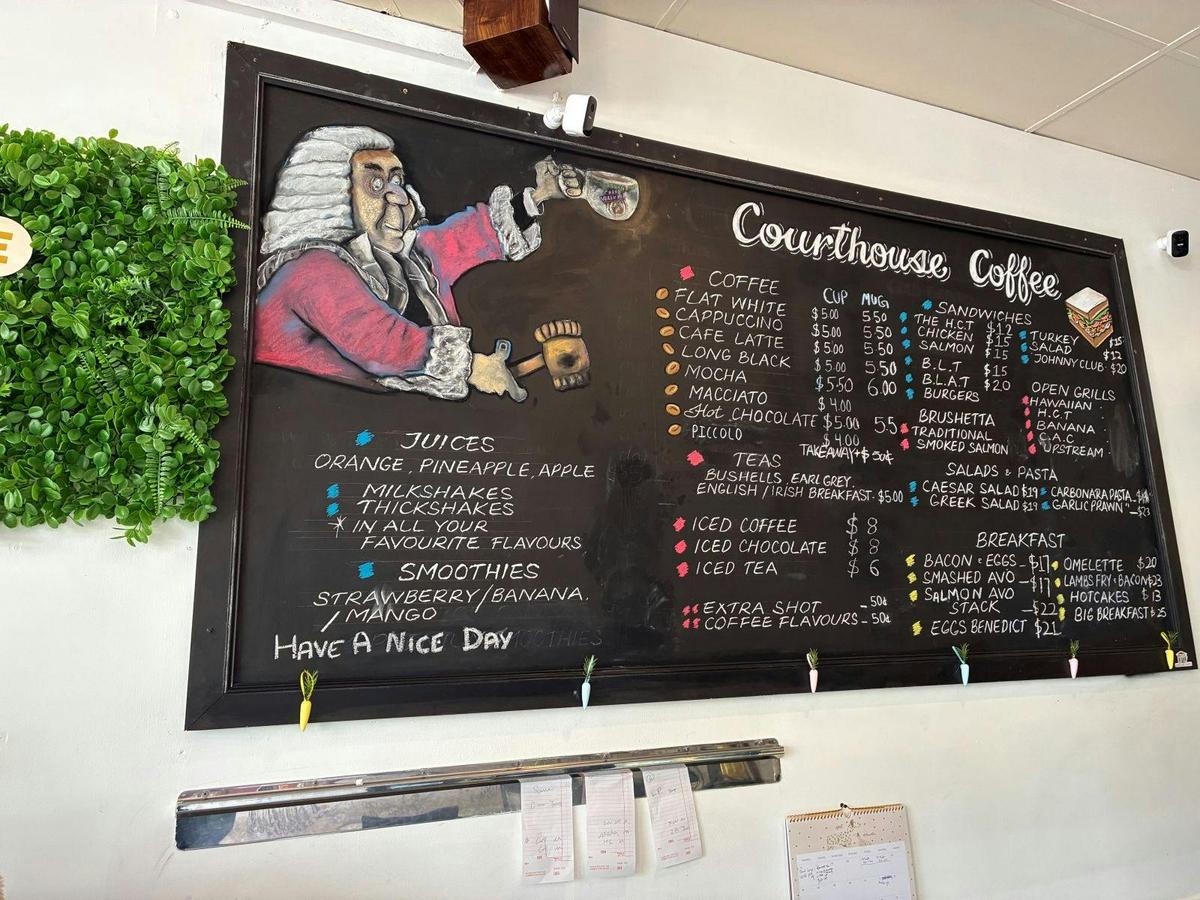 E
Courthouse Coffee
COFFEE CUP MUG
FLAT WHITE $5.00 5.50
CAPPUCCINO $5.00 5.50
CAFE LATTE $5.00 5.50
LONG BLACK $5.00 5.50
MOCHA $5.50 6.00
MACCIATO $4.00
Hot CHOCOLATE $5.00 5.5
PICCOLO $4.00
TAKEAWAY + $ 50¢
TEAS
BUSHELLS, EARL GREY.
ENGLISH / IRISH BREAKFAST. $5.00
ICED COFFEE $8
ICED CHOCOLATE $8
ICED TEA $6
EXTRA SHOT - 50¢
COFFEE FLAVOURS - 50¢
SANDWICHES
THE H.C.T $12
CHICKEN $15
SALMON $15
B.L.T $15
B.L.A.T $20
BURGERS
TURKEY $15
SALAD $12
JOHNNY CLUB $20
BRUSHETTA
TRADITIONAL
SMOKED SALMON
OPEN GRILLS
HAWAIIAN
H.C.T
BANANA
C.A.C
UPSTREAM
SALADS & PASTA
CAESAR SALAD $19
GREEK SALAD $19
CARBONARA PASTA
GARLIC PRAWN " - $23
BREAKFAST
BACON & EGGS - $17
SMASHED AVO - $17
SALMON AVO
STACK - $22
EGGS BENEDICT $21
OMELETTE $20
LAMBS FRY & BACON $23
HOTCAKES $13
BIG BREAKFAST $25
JUICES
ORANGE, PINEAPPLE, APPLE
MILKSHAKES
THICKSHAKES
* IN ALL YOUR
FAVOURITE FLAVOURS
SMOOTHIES
STRAWBERRY / BANANA.
/ MANGO
HAVE A NICE DAY